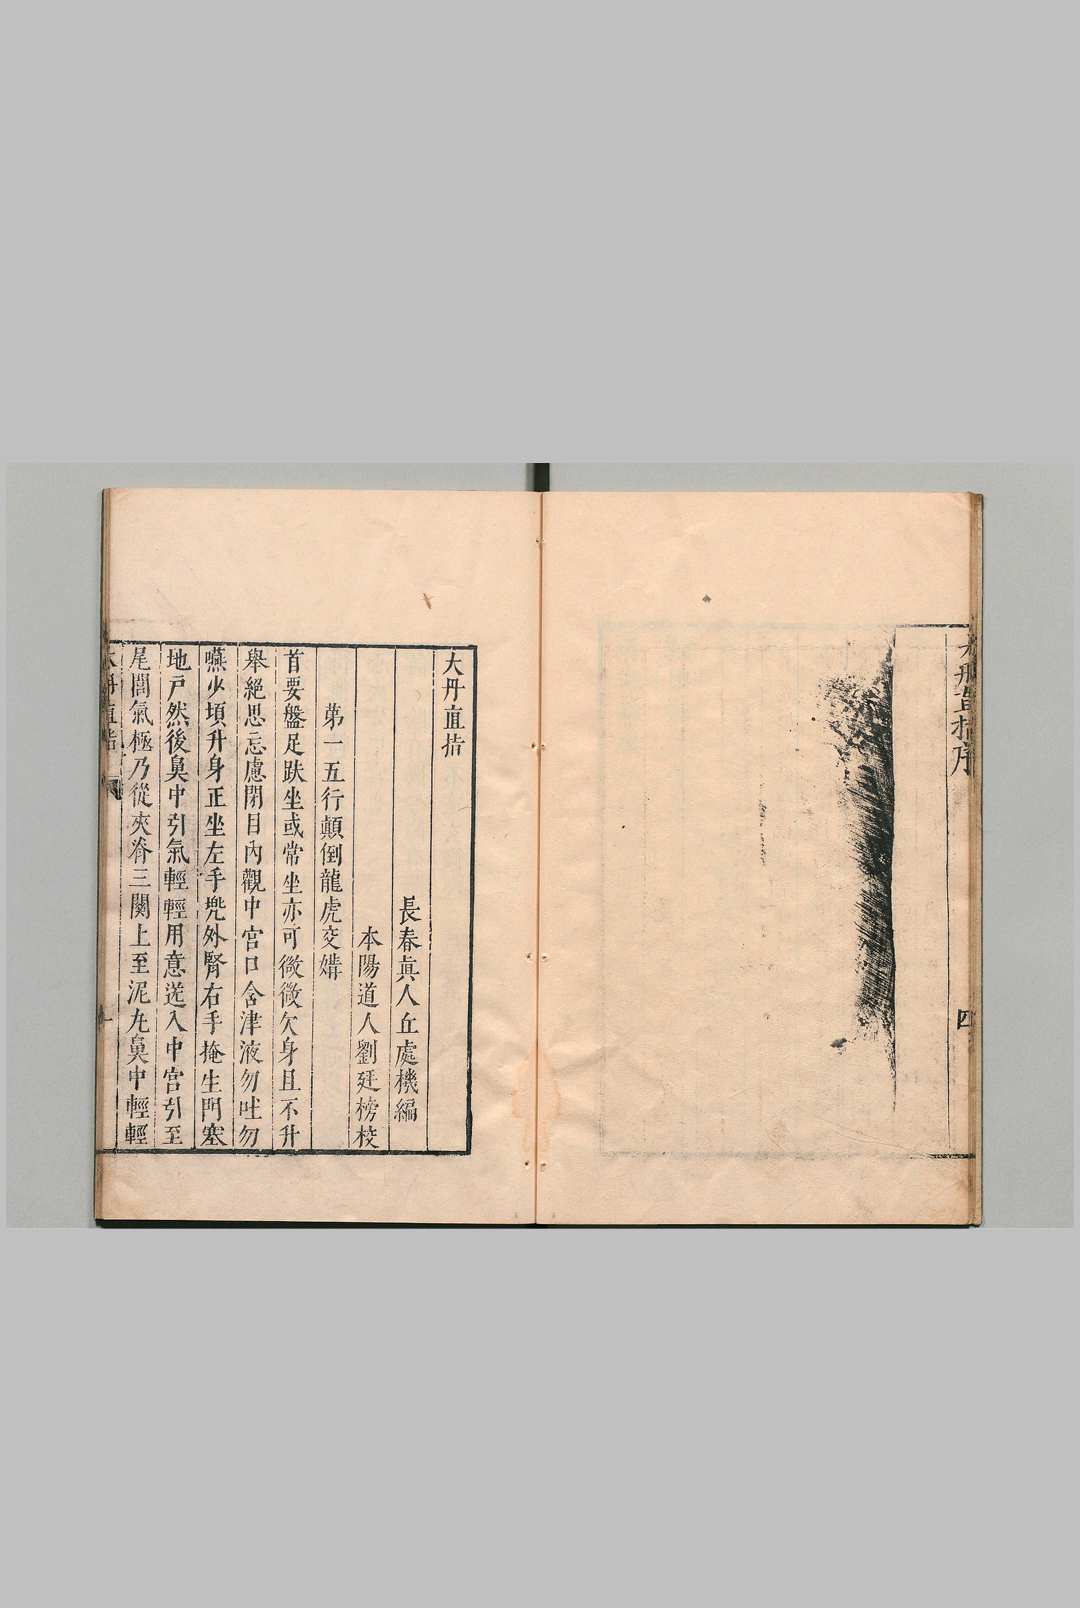 大丹直指序
四
大丹直指
長春真人丘處機編
本陽道人劉廷榜校
第一五行顛倒龍虎交媾
首要盤足趺坐或常坐亦可微微欠身且不升
舉絕思忘慮閉目內觀中宮口含津液勿吐勿
嚥少頃升身正坐左手兠外腎右手掩生門塞
地戸然後鼻中引氣輕輕用意送入中宮引至
尾閭氣極乃從夾脊三關上至泥丸鼻中輕輕
大丹直指
一